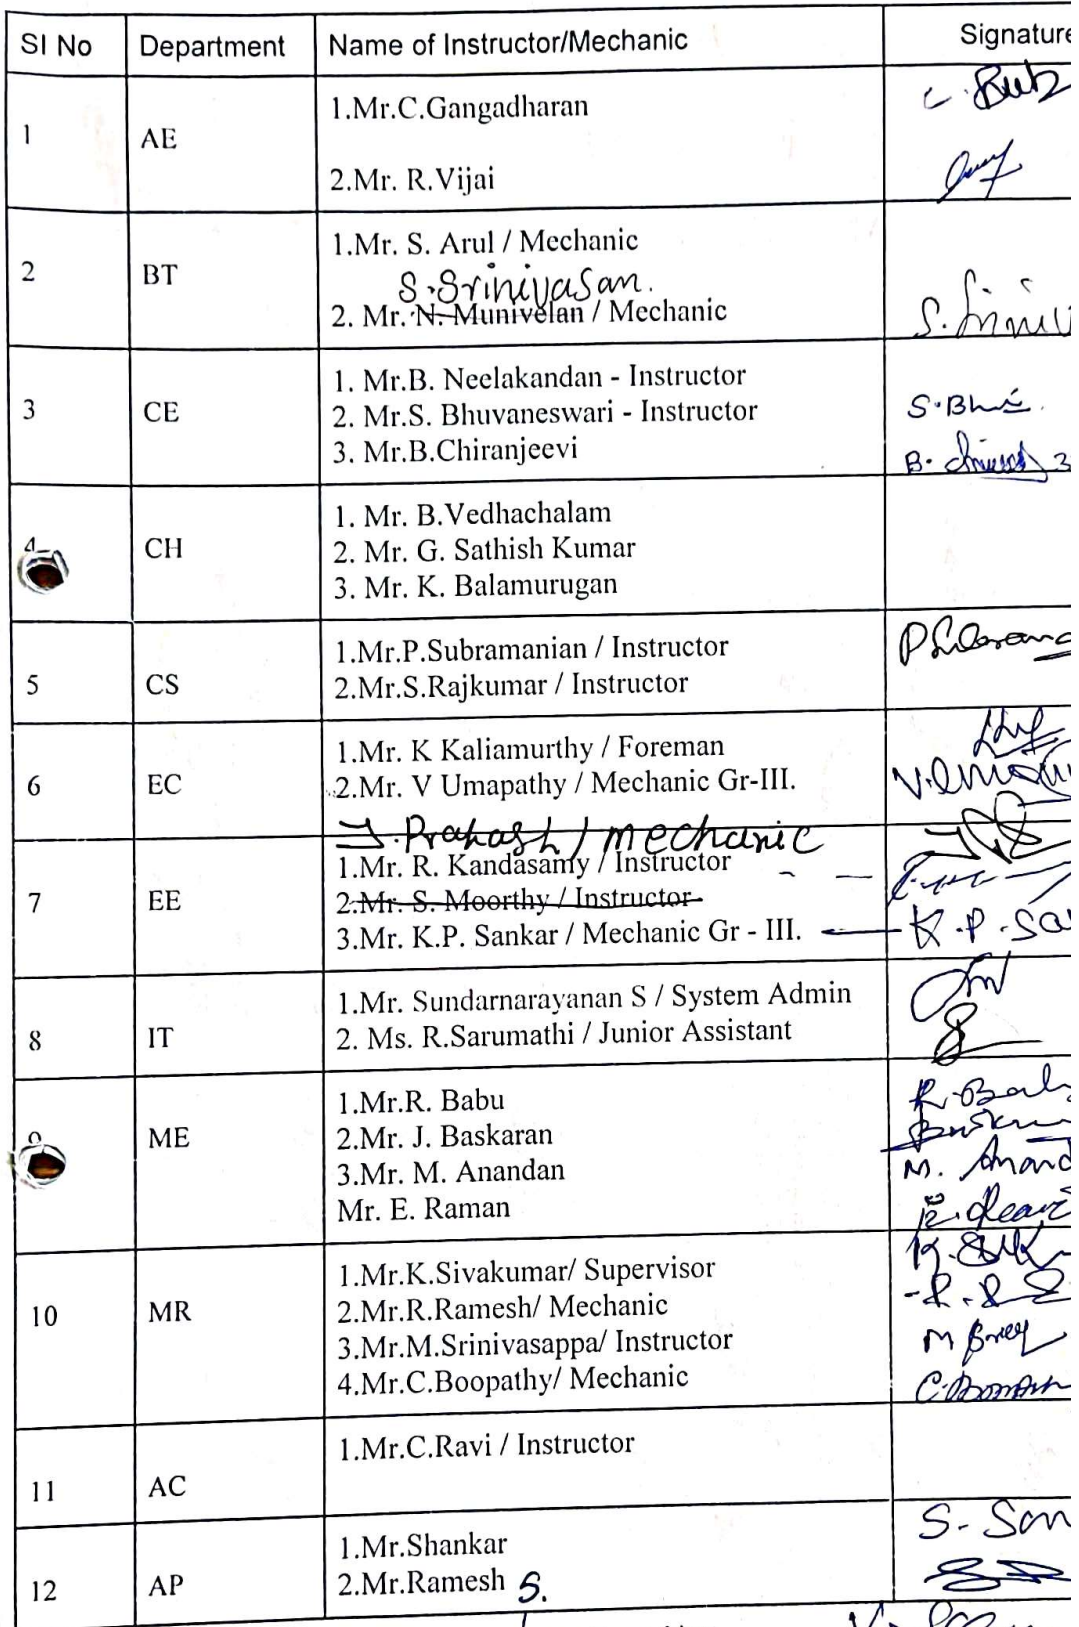 SI No Department Name of Instructor/Mechanic Signature
1 AE 1.Mr.C.Gangadharan
2.Mr. R.Vijai
2 BT 1.Mr. S. Arul / Mechanic
S.Srinivasan.
2. Mr. N. Munivelan / Mechanic
3 CE 1. Mr.B. Neelakandan - Instructor
2. Mr.S. Bhuvaneswari - Instructor
3. Mr.B.Chiranjeevi
4 CH 1. Mr. B.Vedhachalam
2. Mr. G. Sathish Kumar
3. Mr. K. Balamurugan
5 CS 1.Mr.P.Subramanian / Instructor
2.Mr.S.Rajkumar / Instructor
6 EC 1.Mr. K Kaliamurthy / Foreman
2.Mr. V Umapathy / Mechanic Gr-III.
J.Prakash / mechanic
7 EE 1.Mr. R. Kandasamy / Instructor
2.Mr. S. Moorthy / Instructor
3.Mr. K.P. Sankar / Mechanic Gr - III. K.P.Sa
8 IT 1.Mr. Sundarnarayanan S / System Admin
2. Ms. R.Sarumathi / Junior Assistant
9 ME 1.Mr.R. Babu
2.Mr. J. Baskaran
3.Mr. M. Anandan M. Anand
Mr. E. Raman
10 MR 1.Mr.K.Sivakumar/ Supervisor
2.Mr.R.Ramesh/ Mechanic
3.Mr.M.Srinivasappa/ Instructor
4.Mr.C.Boopathy/ Mechanic
11 AC 1.Mr.C.Ravi / Instructor
12 AP 1.Mr.Shankar
2.Mr.Ramesh S.